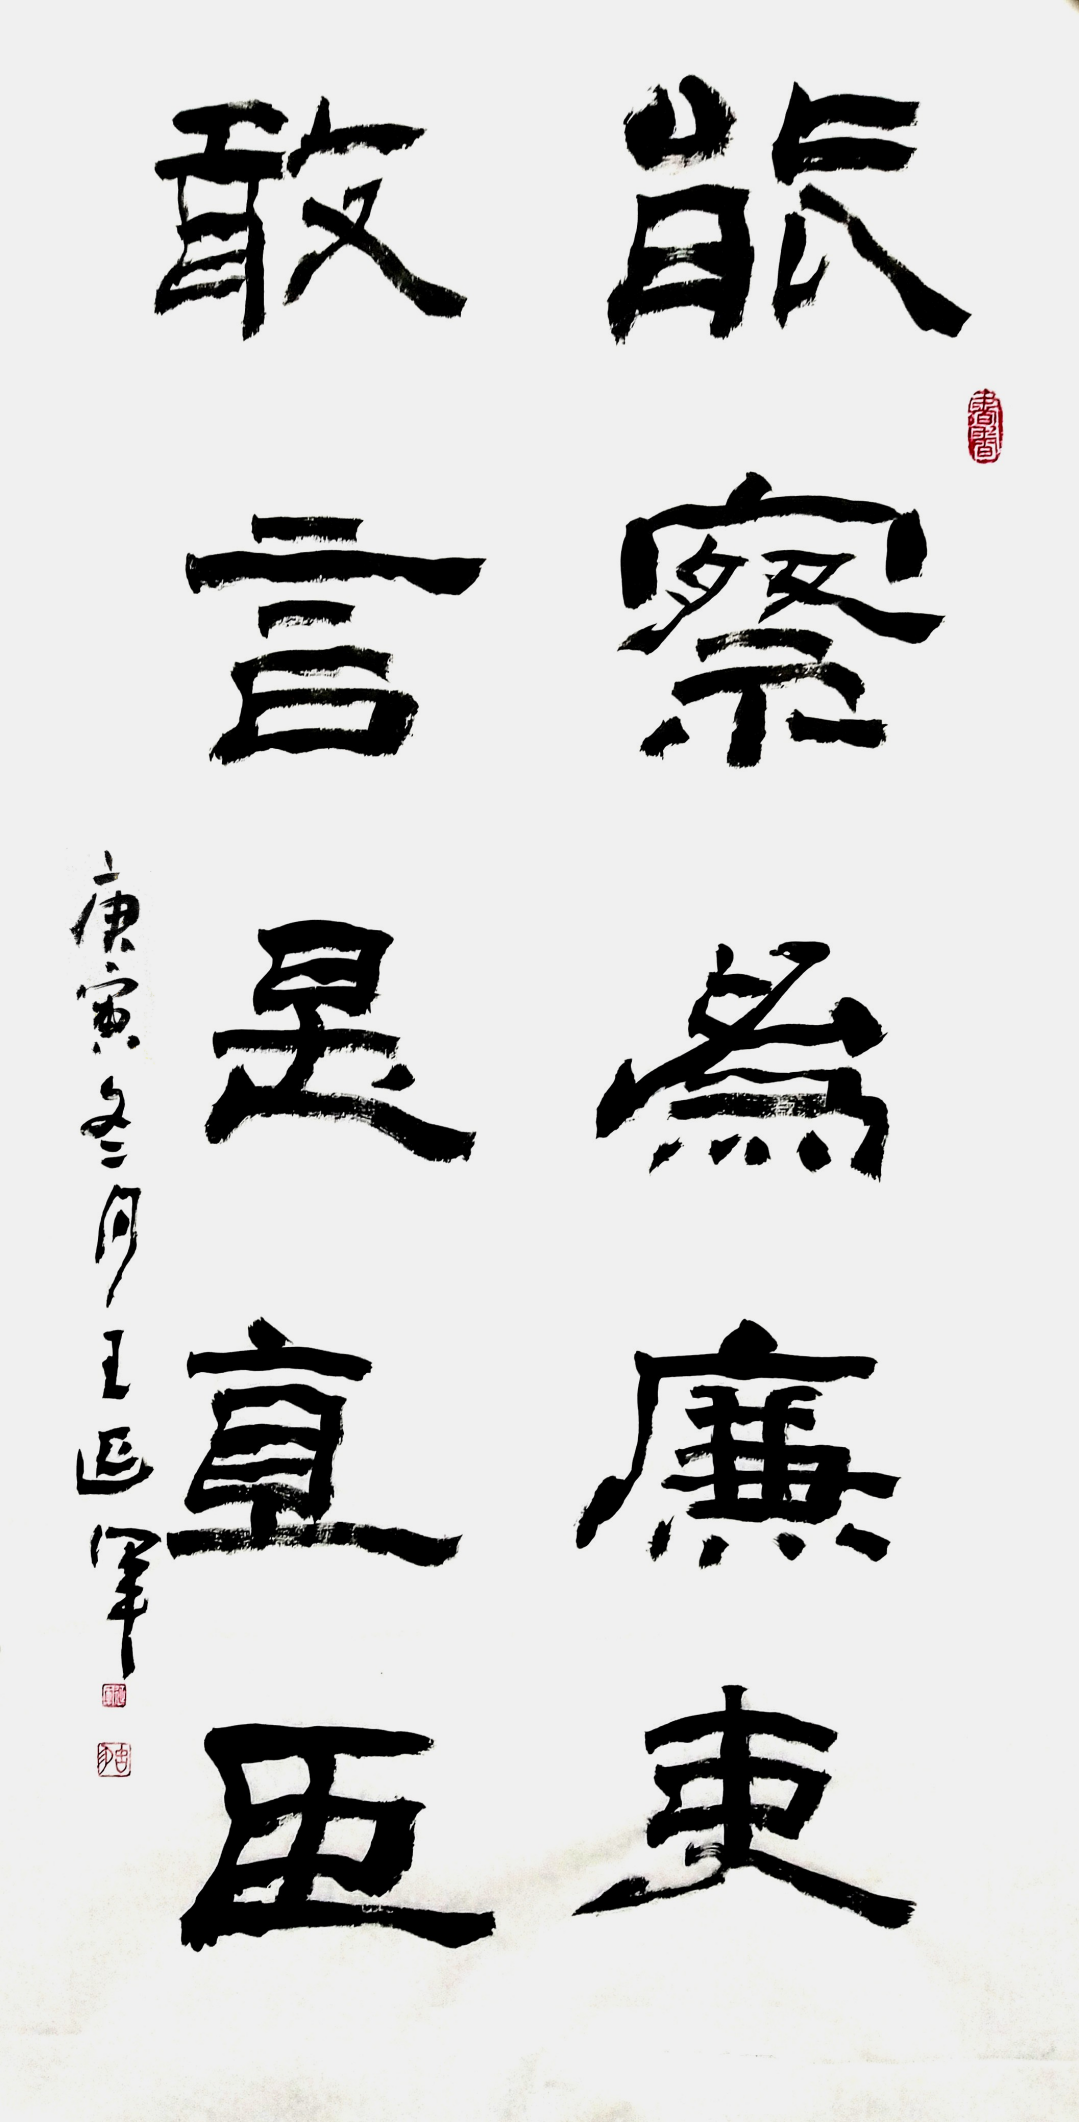 能察為廉吏
敢言是直臣
庚寅冬月王延軍
書香